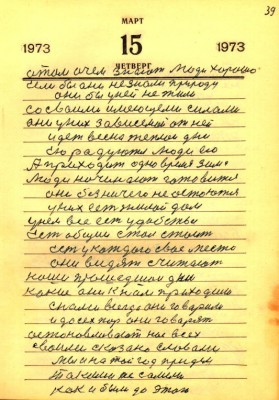 39
МАРТ
1973 15 1973
ЧЕТВЕРГ
а том очем знают люди хорошо
если бы ани не знали природу
они бы у ней не жили
со своими имеющеми силами
ани у них зависений от ней
идет весна теплои дни
радуются люди ею
А приходит одно время зима
люди начинают готовится
они без ничего не остоются
у них есть жилой дом
у нех все есть удобствы
Есть общии стол стоит
есть у каждого свое место
они видят считают
наши прошедшаи дни
какие ани к нам приходили
с нами всегда ани говарили
и до сех пор ани говарят
остоновливают нас всех
своеми сказано словами
мы на той год придем
такими же самими
как и были до этого